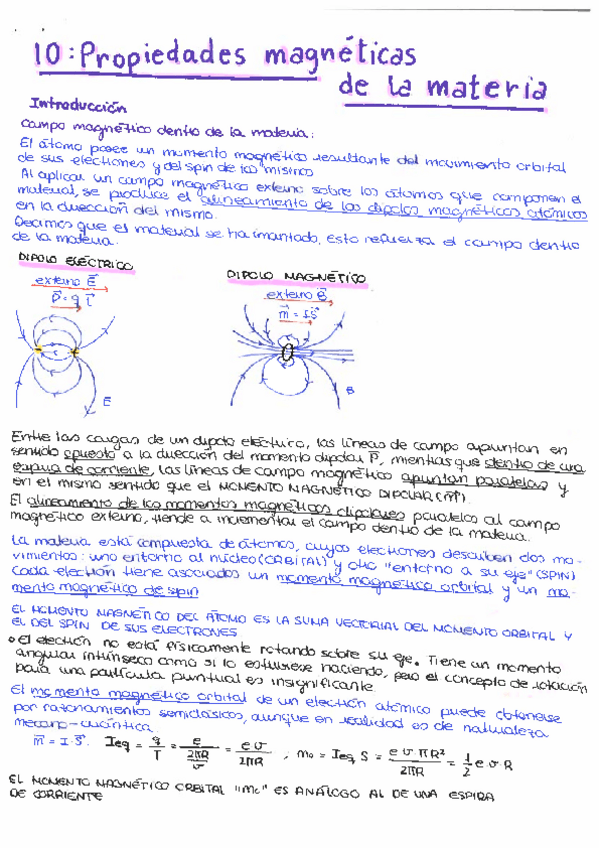 10: Propiedades magnéticas
de la materia
Introducción
Campo magnético dentro de la materia:
El átomo posee un momento magnético resultante del movimiento orbital
de sus electrones y del spin de los mismos
Al aplicar un campo magnético externo sobre los átomos que componen el
material, se produce el alineamiento de los dipolos magnéticos atómicos
en la dirección del mismo.
Decimos que el material se ha imantado, esto refuerza el campo dentro
de la materia.
DIPOLO ELÉCTRICO
DIPOLO MAGNÉTICO
externo E⃗
externo B⃗
P⃗ = q l⃗
m⃗ = I·S⃗
E⃗
B
Entre las cargas de un dipolo eléctrico, las líneas de campo apuntan en
sentido opuesto a la dirección del momento dipolar P⃗, mientras que dentro de una
espira de corriente, las líneas de campo magnético apuntan paralelas y
en el mismo sentido que el MOMENTO MAGNÉTICO DIPOLAR (m⃗).
El alineamiento de los momentos magnéticos dipolares paralelos al campo
magnético externo, tiende a incrementar el campo dentro de la materia.
La materia está compuesta de átomos, cuyos electrones describen dos mo-
vimientos: uno entorno al núcleo (ORBITAL) y otro "entorno a su eje" (SPIN)
Cada electrón tiene asociados un momento magnético orbital y un mo-
mento magnético de spin
EL MOMENTO MAGNÉTICO DEL ÁTOMO ES LA SUMA VECTORIAL DEL MOMENTO ORBITAL Y
EL DEL SPIN DE SUS ELECTRONES
o El electrón no está físicamente rotando sobre su eje. Tiene un momento
angular intrínseco como si lo estuviese haciendo, pero el concepto de rotación
para una partícula puntual es insignificante.
El momento magnético orbital de un electrón atómico puede obtenerse
por razonamientos semiclásicos, aunque en realidad es de naturaleza
mecano-cuántica.
m⃗ = I·S⃗. Ieq = q/T = e/(2πR/v) = e v/2πR ; mo = Ieq S = e v πR²/2πR = 1/2 e v R
EL MOMENTO MAGNÉTICO ORBITAL "mo" ES ANÁLOGO AL DE UNA ESPIRA
DE CORRIENTE